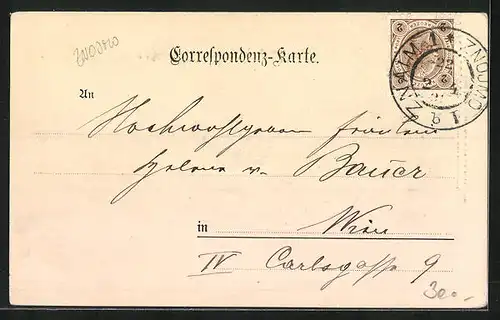 Znojmo
Correspondenz-Karte.
ZNAIM 1 * ZNOJMO 1
22
An
Hochwohlgeboren Fräulein
Helene v. Bauer
in Wien
IV Carlsgasse 9
300.-